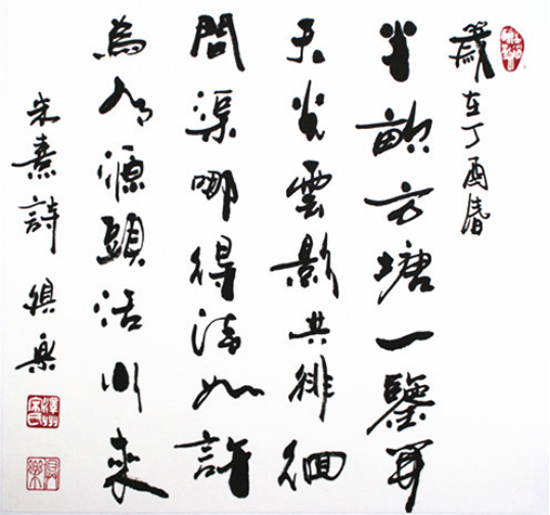 歲在丁酉春
半畝方塘一鑒開
天光雲影共徘徊
問渠哪得清如許
為有源頭活水來
朱熹詩 俱樂